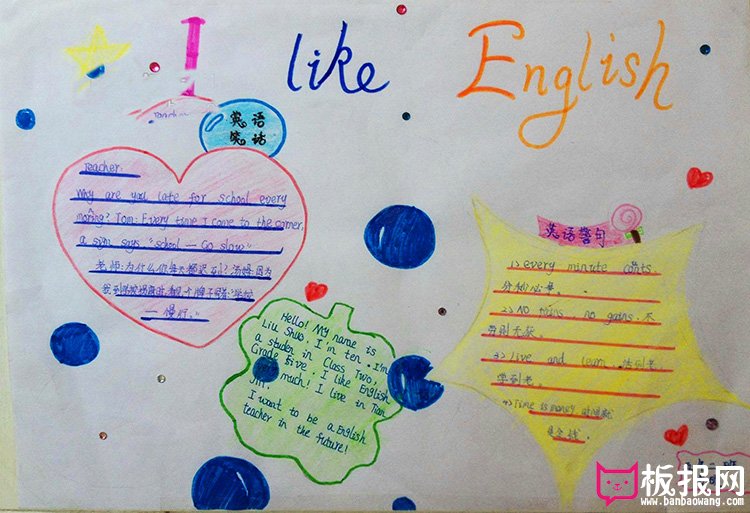 I like English
英语
笑话
Teacher:
Why are you late for school every
morning? Tom: Every time I come to the corner,
a sign says "school — Go slow".
老师:为什么你每天都迟到?汤姆:因为
— 慢行。"
Hello! My name is
Liu Shuo. I'm ten. I'm
a studen in Class Two,
Grade five. I like English
much! I live in Tian
Jin.
I want to be a English
teacher in the future!
英语警句
1) every minute counts.
分秒必争。
2) No pains no gains. 不
劳则无获。
3) live and learn. 活到老,
学到老。
4) Time is money 时间就
是金钱。
板报网
www.banbaowang.com